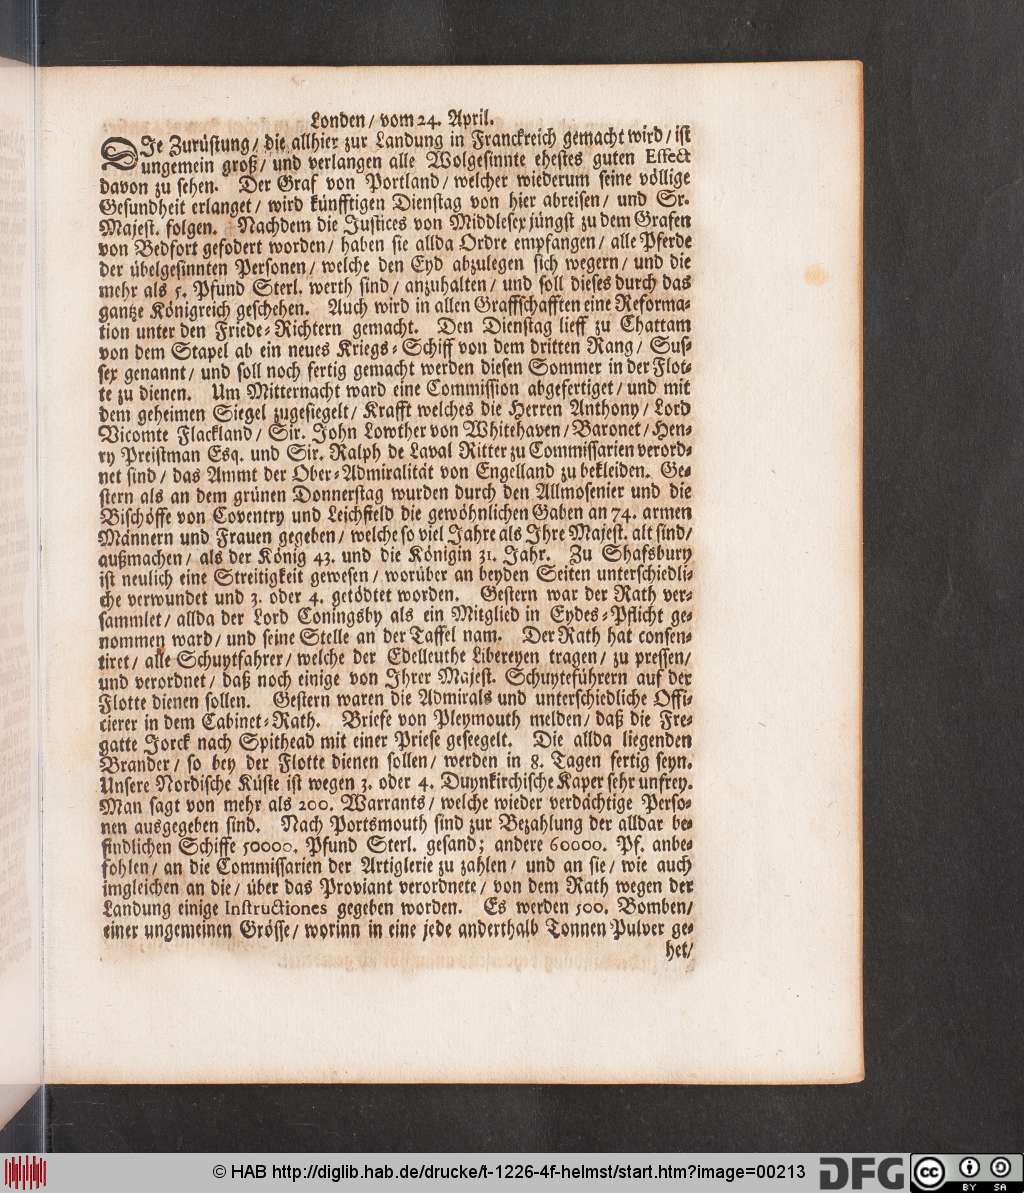 Londen / vom 24. April.
DIe Zurüstung / die allhier zur Landung in Franckreich gemacht wird / ist
ungemein groß / und verlangen alle Wolgesinnte ehestes guten Effect
davon zu sehen. Der Graf von Portland / welcher wiederum seine völlige
Gesundheit erlanget / wird künfftigen Dienstag von hier abreisen / und Sr.
Majest. folgen. Nachdem die Justices von Middlesex jüngst zu dem Grafen
von Bedfort gefodert worden / haben sie allda Ordre empfangen / alle Pferde
der übelgesinnten Personen / welche den Eyd abzulegen sich wegern / und die
mehr als 5. Pfund Sterl. werth sind / anzuhalten / und soll dieses durch das
gantze Königreich geschehen. Auch wird in allen Graffschafften eine Reforma-
tion unter den Friede-Richtern gemacht. Den Dienstag lieff zu Chattam
von dem Stapel ab ein neues Kriegs-Schiff von dem dritten Rang / Sus-
sex genannt / und soll noch fertig gemacht werden diesen Sommer in der Flot-
te zu dienen. Um Mitternacht ward eine Commission abgefertiget / und mit
dem geheimen Siegel zugesiegelt / Krafft welches die Herren Anthony / Lord
Vicomte Flackland / Sir. John Lowther von Whitehaven / Baronet / Hen-
ry Preistman Esq. und Sir. Ralph de Laval Ritter zu Commissarien verord-
net sind / das Ammt der Ober-Admiralität von Engelland zu bekleiden. Ge-
stern als an dem grünen Donnerstag wurden durch den Allmosenier und die
Bischöffe von Coventry und Leichfield die gewöhnlichen Gaben an 74. armen
Männern und Frauen gegeben / welche so viel Jahre als Ihre Majest. alt sind /
außmachen / als der König 43. und die Königin 31. Jahr. Zu Shafsbury
ist neulich eine Streitigkeit gewesen / worüber an beyden Seiten unterschiedli-
che verwundet und 3. oder 4. getödtet worden. Gestern war der Rath ver-
sammlet / allda der Lord Coningsby als ein Mitglied in Eydes-Pflicht ge-
nommen ward / und seine Stelle an der Taffel nam. Der Rath hat consen-
tiret / alle Schuytfahrer / welche der Edelleuthe Libereyen tragen / zu pressen /
und verordnet / daß noch einige von Ihrer Majest. Schuyteführern auf der
Flotte dienen sollen. Gestern waren die Admirals und unterschiedliche Offi-
cierer in dem Cabinet-Rath. Briefe von Pleymouth melden / daß die Fre-
gatte Jorck nach Spithead mit einer Priese geseegelt. Die allda liegenden
Brander / so bey der Flotte dienen sollen / werden in 8. Tagen fertig seyn.
Unsere Nordische Küste ist wegen 3. oder 4. Duynkirchische Kaper sehr unfrey.
Man sagt von mehr als 200. Warrants / welche wieder verdächtige Perso-
nen ausgegeben sind. Nach Portsmouth sind zur Bezahlung der alldar be-
findlichen Schiffe 50000. Pfund Sterl. gesand; andere 60000. Pf. anbe-
fohlen / an die Commissarien der Artiglerie zu zahlen / und an sie / wie auch
imgleichen an die / über das Proviant verordnete / von dem Rath wegen der
Landung einige Instructiones gegeben worden. Es werden 500. Bomben /
einer ungemeinen Grösse / worinn in eine jede anderthalb Tonnen Pulver ge-
het /
© HAB http://diglib.hab.de/drucke/t-1226-4f-helmst/start.htm?image=00213
DFG
cc
BY SA